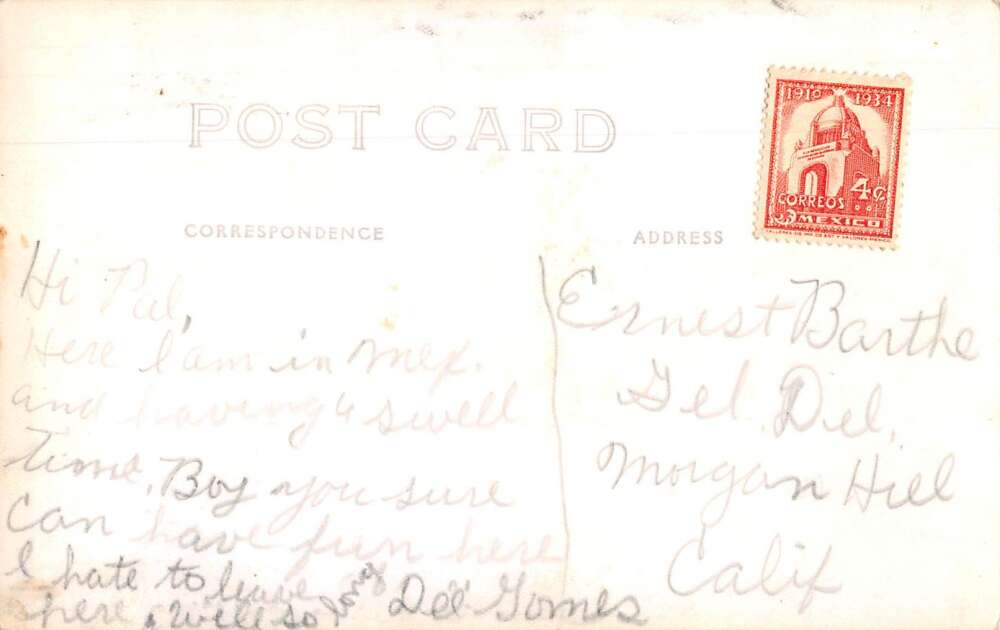 POST CARD
1910 1934
4¢
CORREOS
MEXICO
CORRESPONDENCE
ADDRESS
Hi Pal,
Here I am in Mex.
and having a swell
time. Boy you sure
can have fun here
I hate to leave
here. Well so long
Del Gomes
Ernest Barthe
Gel. Del.
Morgan Hill
Calif